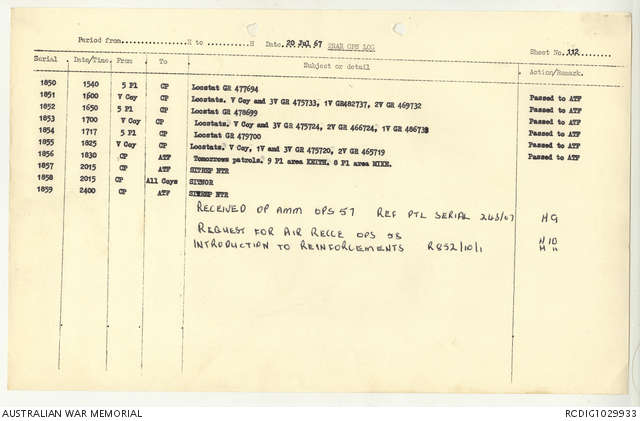 Period from..................H to ............H Date. 20 Jul 67 2RAR OPS LOG Sheet No. 112
Serial Date/Time From To Subject or detail Action/Remark.
1850 1540 5 Pl CP Locstat GR 477694 Passed to ATF
1851 1600 V Coy CP Locstats. V Coy and 3V GR 475733, 1V GR482737, 2V GR 469732 Passed to ATF
1852 1650 5 Pl CP Locstat GR 478699 Passed to ATF
1853 1700 V Coy CP Locstats. V Coy and 3V GR 475724, 2V GR 466724, 1V GR 486738 Passed to ATF
1854 1717 5 Pl CP Locstat GR 479700 Passed to ATF
1855 1825 V Coy CP Locstats. V Coy, 1V and 3V GR 475720, 2V GR 465719 Passed to ATF
1856 1830 CP ATF Tomorrows patrols. 9 Pl area KEITH. 8 Pl area MIKE.
1857 2015 CP ATF SITREP NTR
1858 2015 CP All Coys SITNOR
1859 2400 CP ATF SITREP NTR
RECEIVED OP AMM OPS 57 REF PTL SERIAL 243/67 HQ
REQUEST FOR AIR RECCE OPS 58
INTRODUCTION TO REINFORCEMENTS R852/10/1
AUSTRALIAN WAR MEMORIAL RCDIG1029933